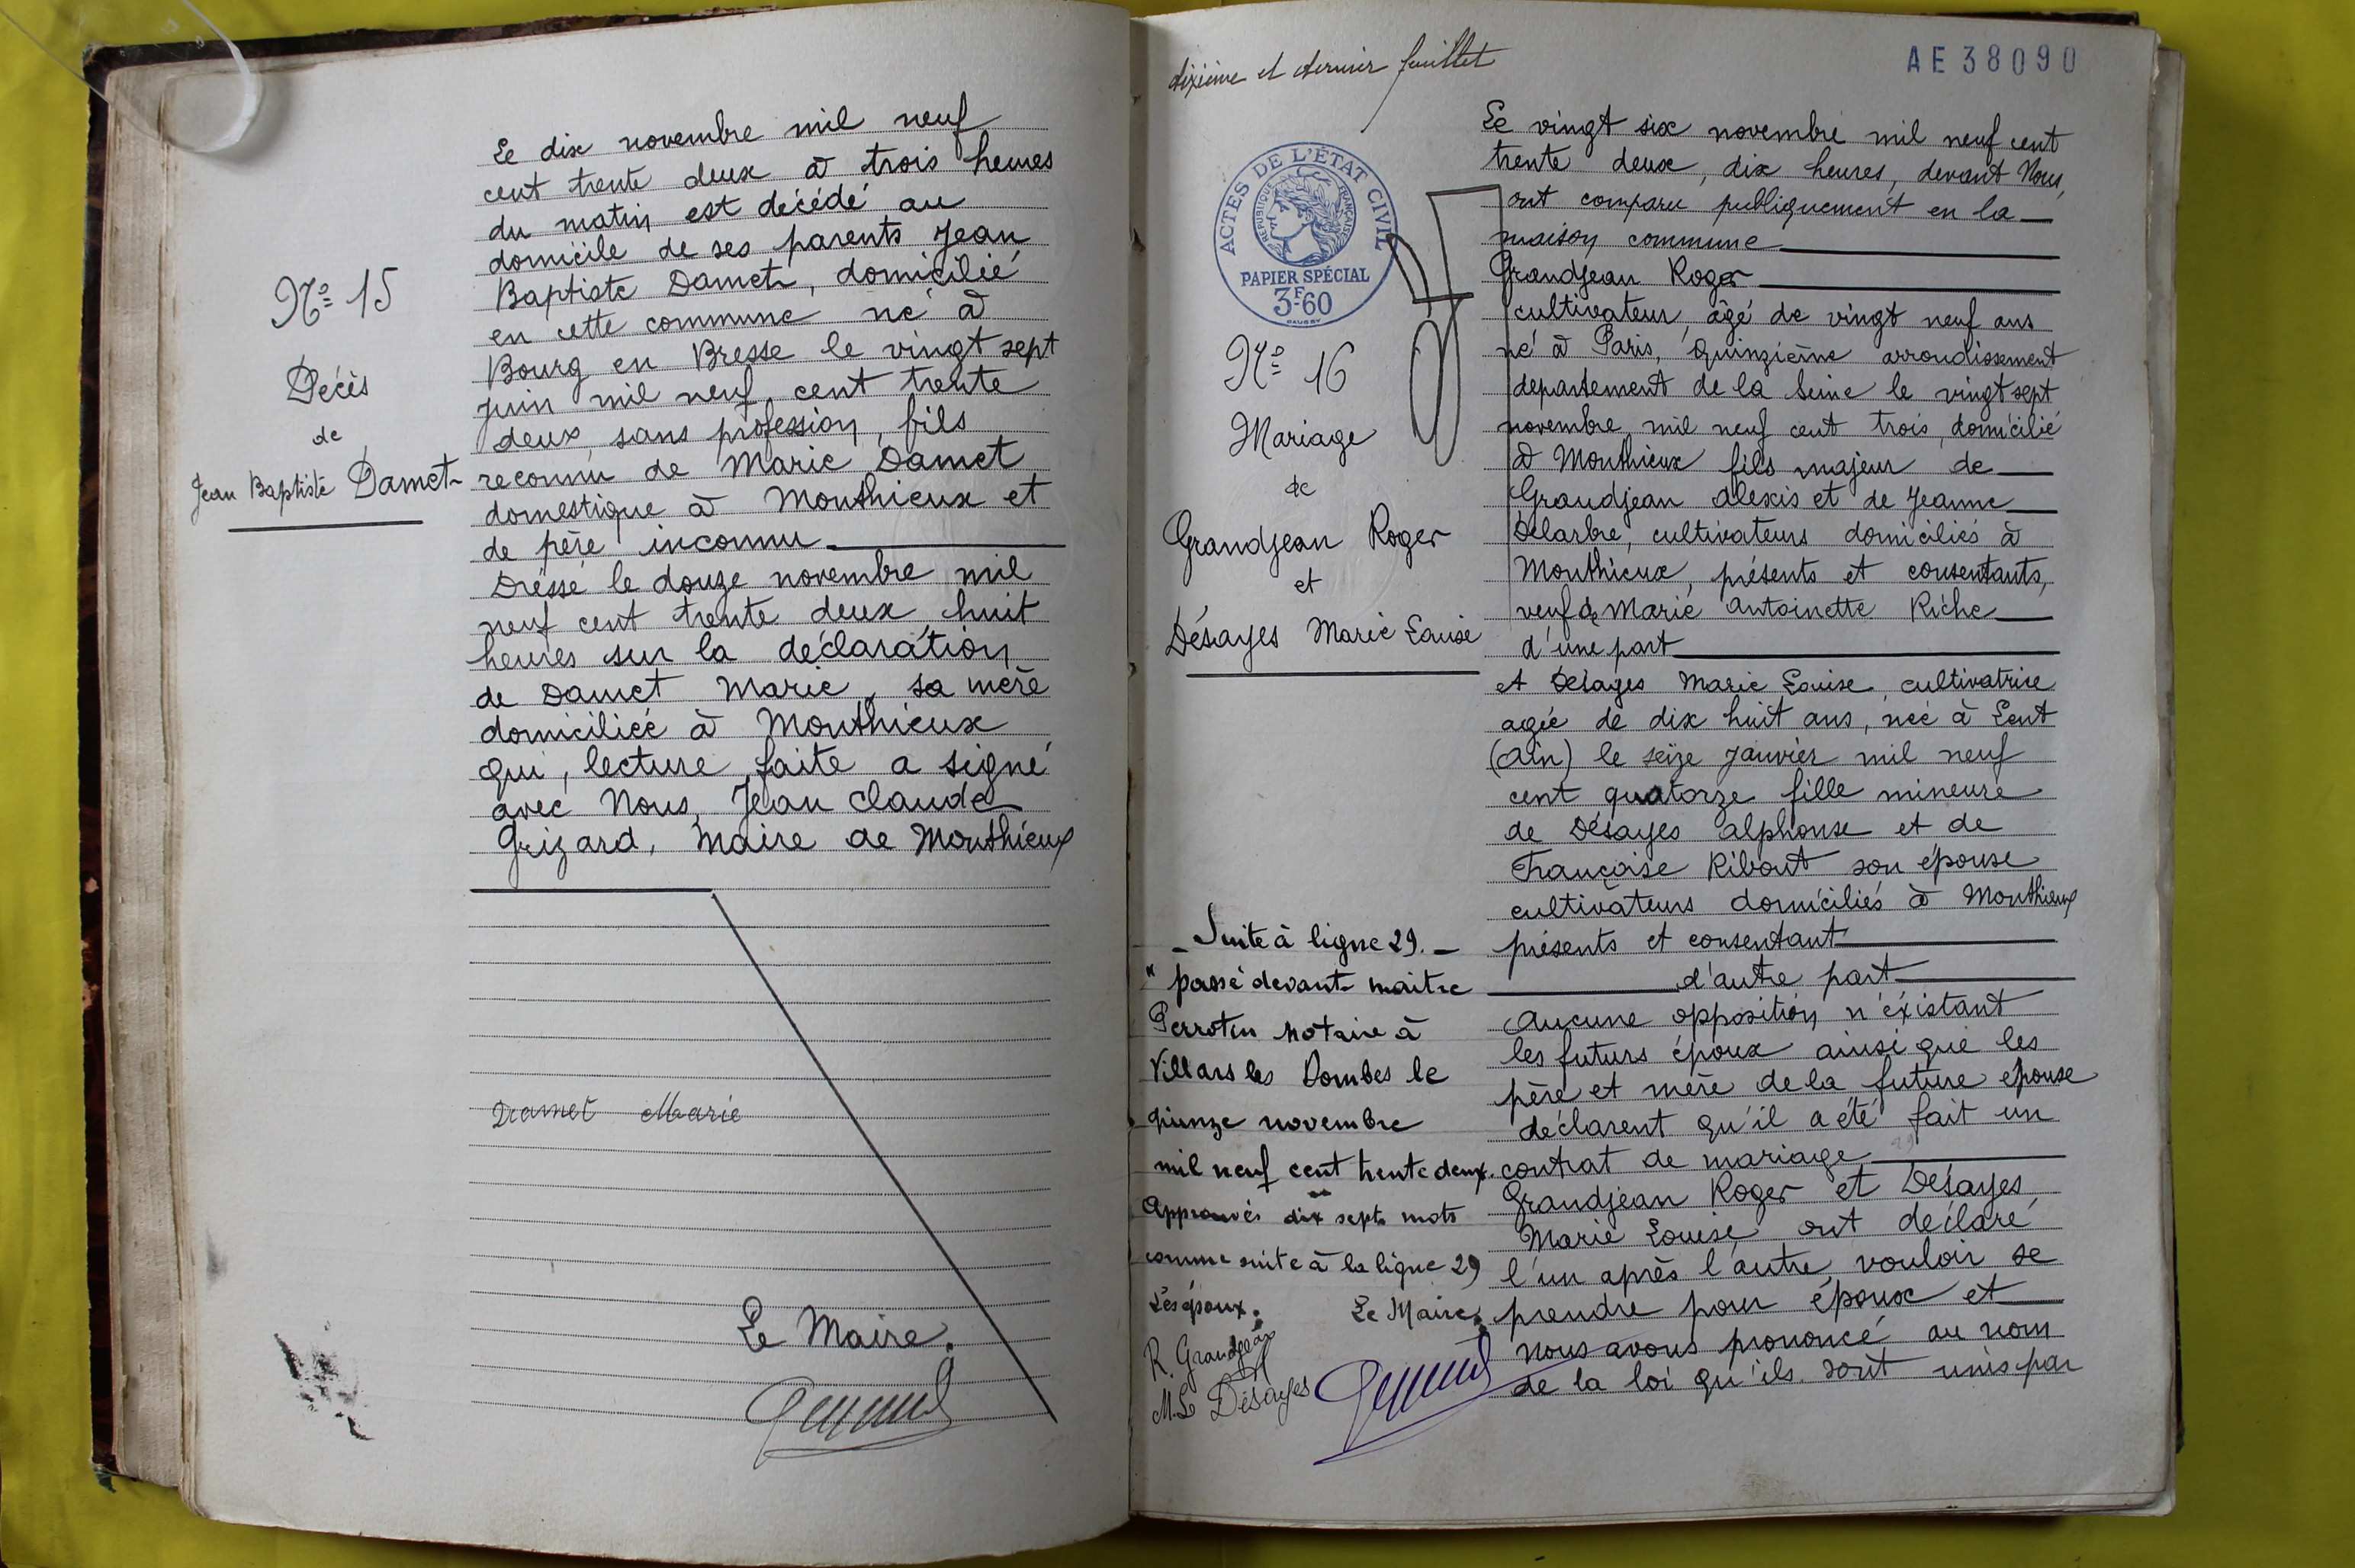 Le dix novembre mil neuf
cent trente deux à trois heures
du matin est décédé au
domicile de ses parents Jean
Baptiste Damet, domicilié
en cette commune né à
Bourg en Bresse le vingt sept
juin mil neuf cent trente
deux, sans profession, fils
reconnu de Marie Damet
domestique à Monthieux et
de père inconnu
Dressé le douze novembre mil
neuf cent trente deux, huit
heures sur la déclaration
de Damet Marie, sa mère
domiciliée à Monthieux
qui, lecture faite a signé
avec Nous, Jean Claude
Grizard, Maire de Monthieux
N° 15
Décès
de
Jean Baptiste Damet
Damet Marie
Le Maire.
dixième et dernier feuillet
AE 38090
ACTES DE L'ÉTAT CIVIL
RÉPUBLIQUE FRANÇAISE
PAPIER SPÉCIAL
3F-60
N° 16
Mariage
de
Grandjean Roger
et
Désayes Marie Louise
Le vingt six novembre mil neuf cent
trente deux, dix heures, devant Nous,
ont comparu publiquement en la
maison commune
Grandjean Roger
cultivateur, âgé de vingt neuf ans
né à Paris, Quinzième arrondissement
département de la Seine le vingt sept
novembre mil neuf cent trois, domicilié
à Monthieux fils majeur de
Grandjean Alexis et de Jeanne
Delarbre, cultivateurs domiciliés à
Monthieux, présents et consentants,
veuf de Marie Antoinette Riche
d'une part
et Désayes Marie Louise, cultivatrice
agée de dix huit ans, née à Lent
(Ain) le seize Janvier mil neuf
cent quatorze fille mineure
de Désayes Alphonse et de
Françoise Ribout son épouse
cultivateurs domiciliés à Monthieux
présents et consentant
d'autre part
Aucune opposition n'éxistant
les futurs époux ainsi que les
père et mère de la future epouse
déclarent qu'il a été fait un
contrat de mariage
Grandjean Roger et Désayes
Marie Louise, ont déclaré
l'un après l'autre, vouloir se
prendre pour époux et
nous avons prononcé au nom
de la loi qu'ils sont unis par
- Suite à ligne 29. -
" passé devant maitre
Perrotin notaire à
Villars les Dombes le
quinze novembre
mil neuf cent trente deux.
Approuvés dix sept mots
comme suite à la ligne 29
Les époux. Le Maire.
R. Grandjean
M.L Désayes